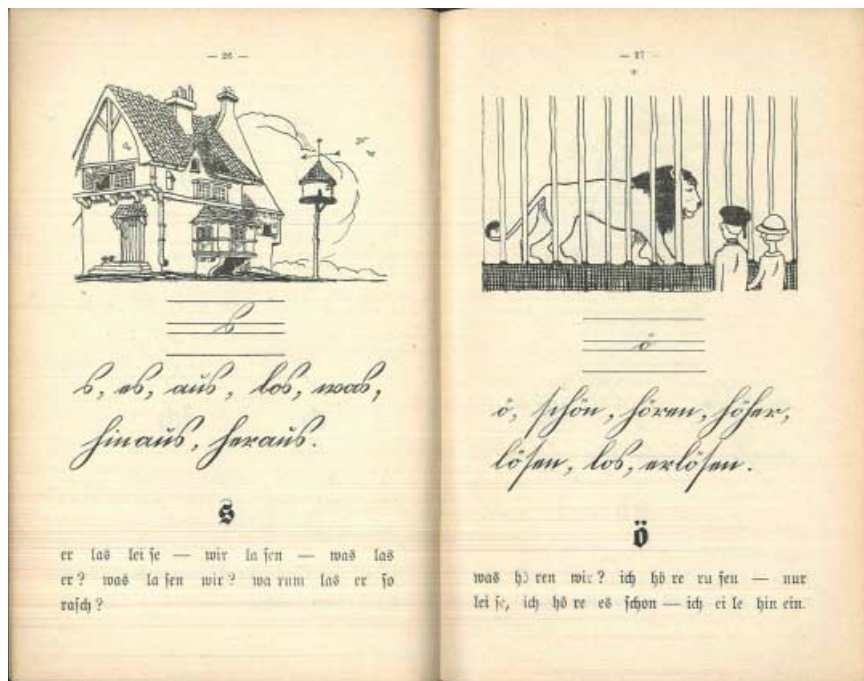 — 26 —
s
s, es, aus, los, was,
hinaus, heraus.
s
er las lei se — wir la sen — was las
er? was la sen wir? wa rum las er so
rasch?
— 27 —
ö
ö, schön, hören, höher,
lösen, los, erlösen.
ö
was hö ren wir? ich hö re ru fen — nur
lei se, ich hö re es schon — ich ei le hin ein.